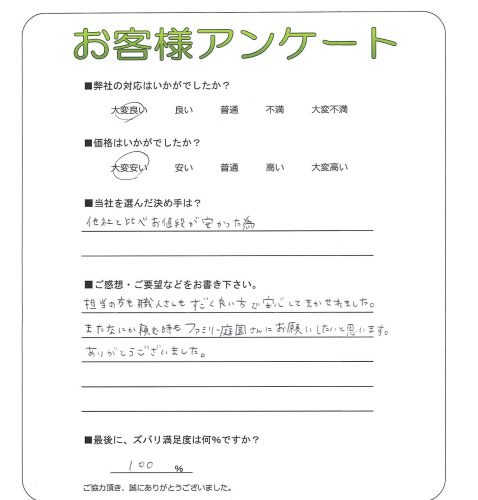 お客様アンケート
■弊社の対応はいかがでしたか？
大変良い 良い 普通 不満 大変不満
■価格はいかがでしたか？
大変安い 安い 普通 高い 大変高い
■当社を選んだ決め手は？
他社と比べお値段が安かった為
■ご感想・ご要望などをお書き下さい。
担当の方も職人さんもすごく良い方で安心してまかせれました。
またなにか頼む時もファミリー庭園さんにお願いしたいと思います。
ありがとうございました。
■最後に、ズバリ満足度は何%ですか？
100 %
ご協力頂き、誠にありがとうございました。